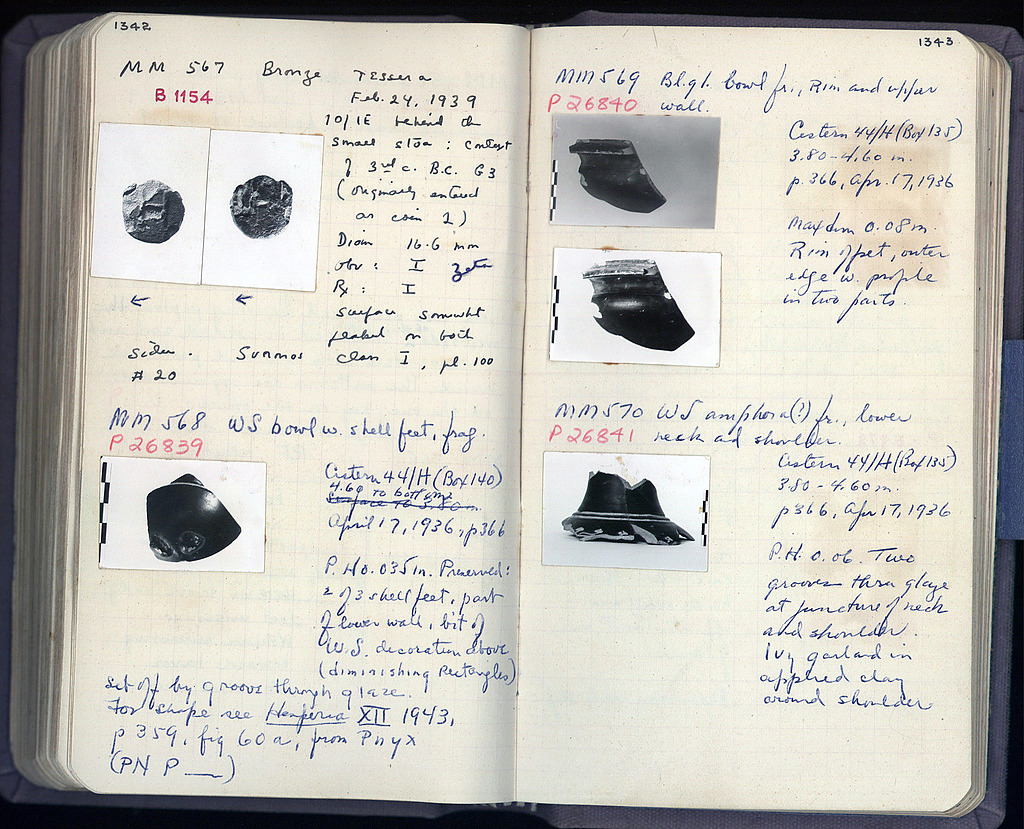 1342
MM 567 Bronze Tessera
B 1154
Feb. 24, 1939
10/IE behind the
small stoa : context
of 3rd c. B.C. G3
(originally entered
as coin 1)
Diam 16.6 mm
obv : I zeta
Rx : I
surface somewhat
pealed on both
sides. Svoronos class I, pl. 100
# 20
MM 568 WS bowl w. shell feet, frag.
P 26839
Cistern 44/H (Box 140)
4.60 to bottom
surface to 3.80 m.
April 17, 1936, p 366
P. H 0.035 m. Preserved:
2 of 3 shell feet, part
of lower wall, bit of
W.S. decoration above
(diminishing rectangles)
set off by groove through glaze.
For shape see Hesperia XII 1943,
p 359, fig 60a, from Pnyx
(PN P ___)
1343
MM 569 Bl. gl. bowl fr., Rim and upper
P 26840 wall.
Cistern 44/H (Box 135)
3.80-4.60 m.
p. 366, Apr. 17, 1936
Max dim 0.08 m.
Rim offset, outer
edge w. profile
in two parts.
MM 570 WS amphora(?) fr., lower
P 26841 neck and shoulder.
Cistern 44/H (Box 135)
3.80-4.60 m.
p 366, Apr 17, 1936
P.H. 0.06. Two
grooves thru glaze
at juncture of neck
and shoulder.
Ivy garland in
applied clay
around shoulder